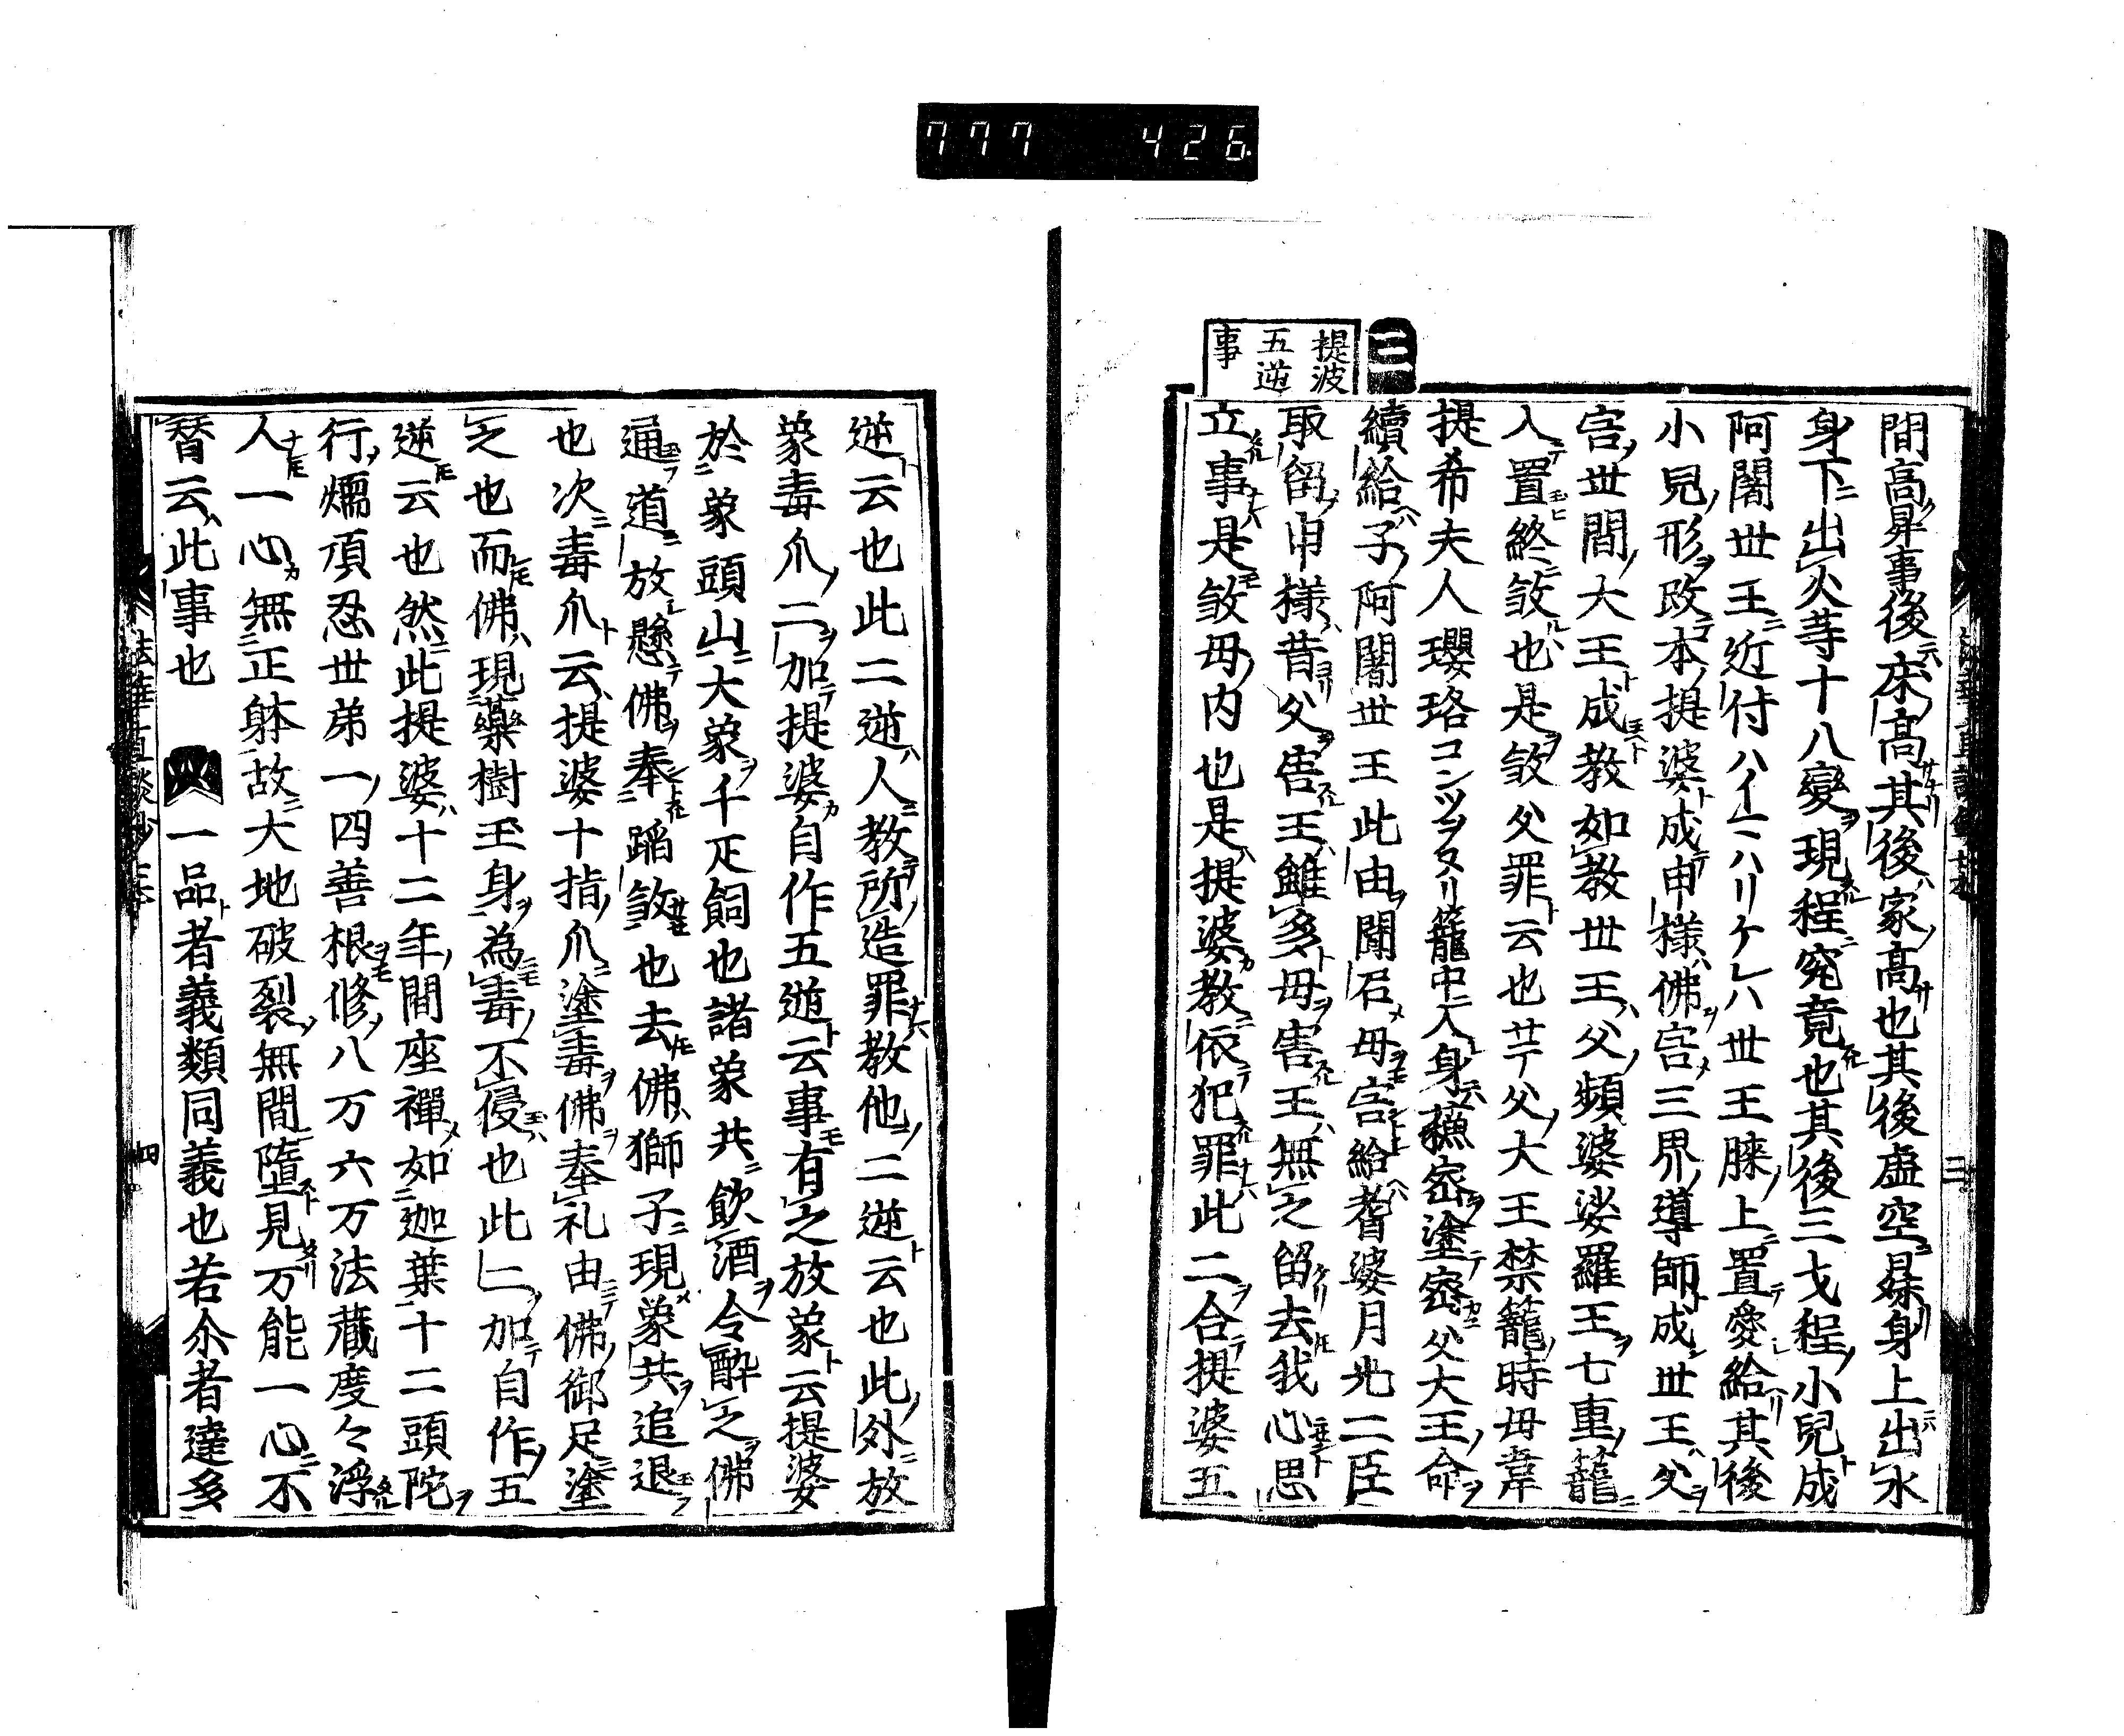 777 426
三
提波
五逆
事
間高昇事後床高其後家高也其後虚空昇身上出水
身下出火等十八變現程究竟也其後三才程小兒成
阿闍世王近付ハイ ハリケレハ世王膝上置愛給其後
小兒形改本提婆成申様佛害三界導師成世王父
害世間大王成教如教世王父頻婆娑羅王七重籠
入置終敛也是敛父罪云也サテ父大王禁籠時母韋
提希夫人瓔珞コンツヲヌリ籠中入身蘓蜜塗密父大王命
續給子阿闍世王此由聞召母害給耆婆月光二臣
取留申様昔父害王雖多母害王無之留去我心思
立事是敛母内也是提婆教依犯罪此二合提婆五
逆云也此二逆人教所造罪教他二逆云也此外放
象毒爪二加提婆自作五逆云事有之放象云提婆
於象頭山大象千疋飼也諸象共飲酒令酔之佛
通道放懸佛奉蹈敛也去佛獅子現象共追退
也次毒爪云提婆十指爪塗毒佛奉礼由佛御足塗
之也而佛現藥樹王身為毒不侵也此二加自作五
逆云也然此提婆十二年間座禪如迦葉十二頭陀
行煗頂忍世弟一四善根修八万六万法藏度々浮
人一心無正躰故大地破裂無間墮見万能一心不
替云此事也 四 一品者義類同義也若尒者達多
法華直談鈔
四